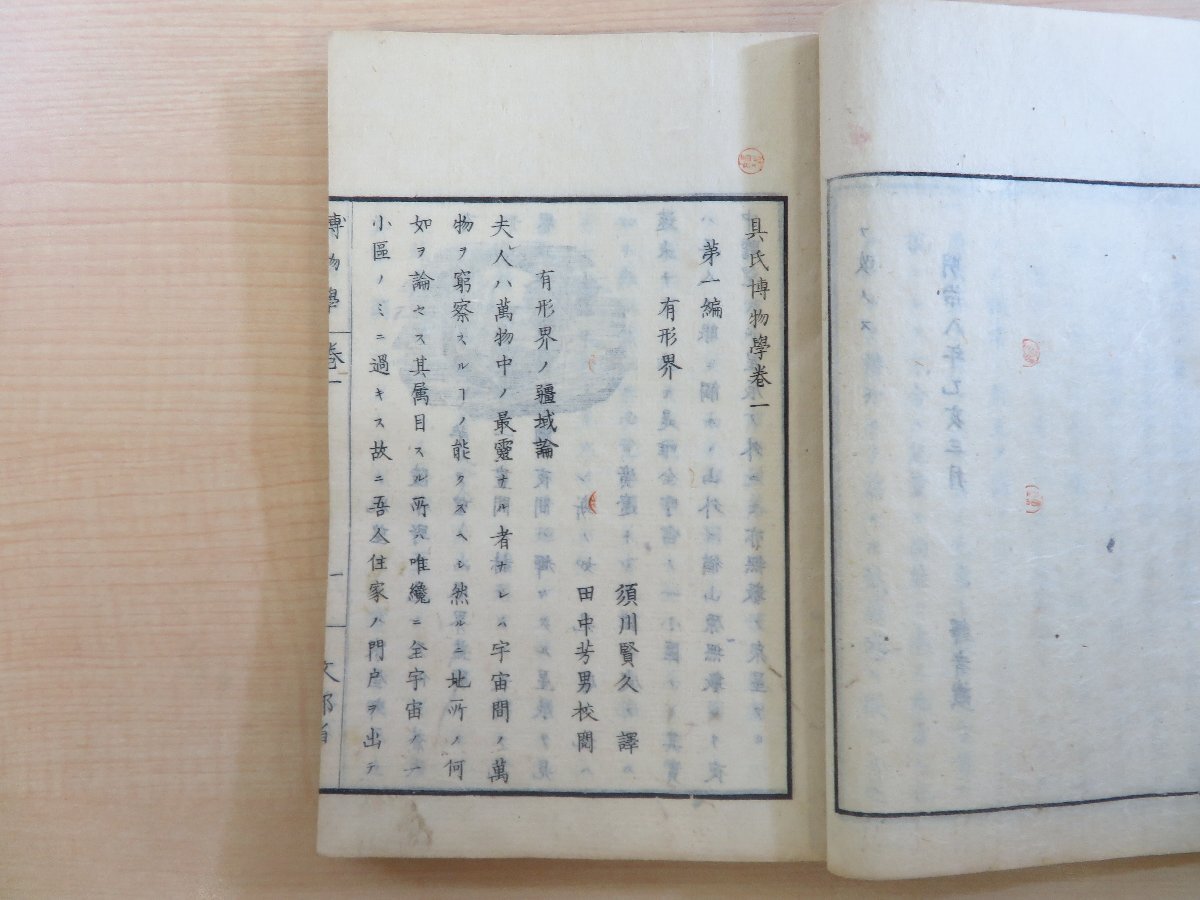 具氏博物學卷一
第一編
有形界
須川賢久 譯
田中芳男校閲
有形界ノ疆域論
夫人ハ萬物中ノ最靈ナル者ナレハ宇宙間ノ萬
物ヲ窮察スルヿノ能クスヘシ然ルニ地所ノ何
如ヲ論セス其属目スル所ハ唯纔ニ全宇宙ノ一
小區ノミニ過キス故ニ吾人住家ノ門户ヲ出テ
博物學 卷一 一 文部省